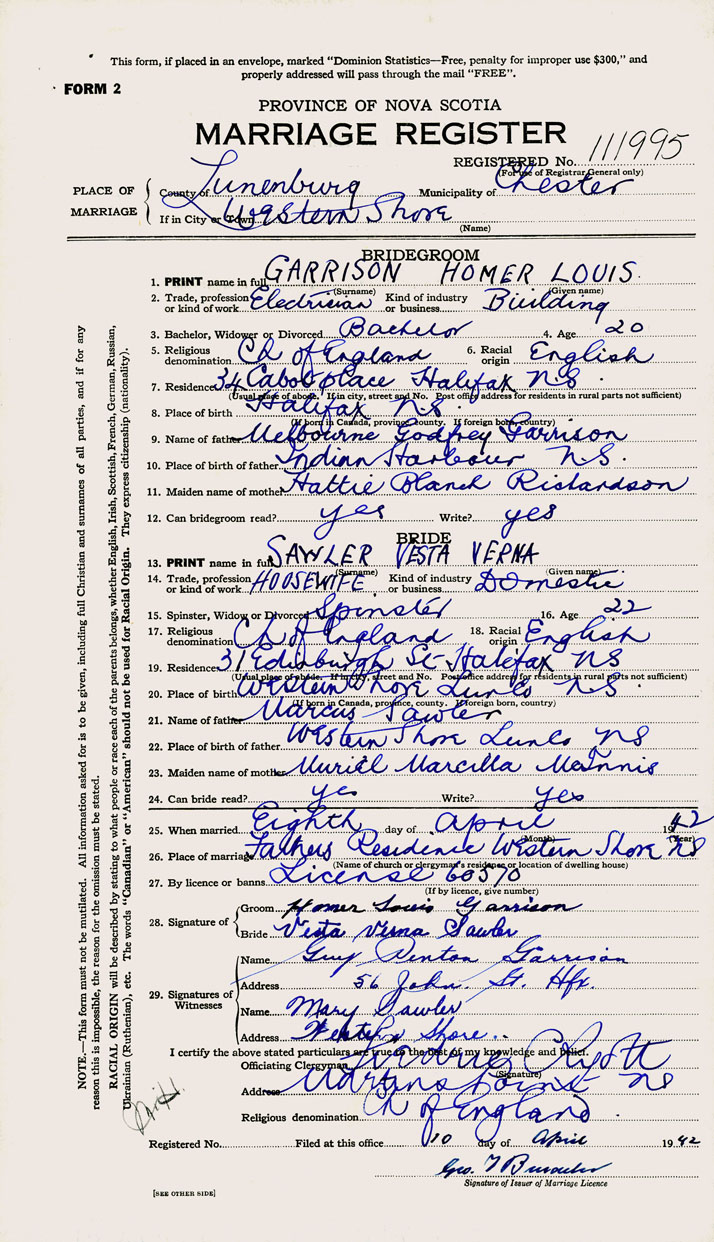 This form, if placed in an envelope, marked "Dominion Statistics—Free, penalty for improper use $300," and
properly addressed will pass through the mail "FREE".
FORM 2
PROVINCE OF NOVA SCOTIA
MARRIAGE REGISTER
REGISTERED No. 111995
(For use of Registrar General only)
PLACE OF MARRIAGE
County of Lunenburg Municipality of Chester
If in City or Town Western Shore
(Name)
BRIDEGROOM
1. PRINT name in full GARRISON HOMER LOUIS
(Surname) (Given name)
2. Trade, profession or kind of work Electrician Kind of industry or business Building
3. Bachelor, Widower or Divorced Bachelor 4. Age 20
5. Religious denomination Ch of England 6. Racial origin English
7. Residence 34 Cabot place Halifax NS
(Usual place of abode. If in city, street and No. Post office address for residents in rural parts not sufficient)
8. Place of birth Halifax NS
(If born in Canada, province, county. If foreign born, country)
9. Name of father Melbourne Godfrey Garrison
10. Place of birth of father Indian Harbour N.S.
11. Maiden name of mother Hattie Blanch Richardson
12. Can bridegroom read? yes Write? yes
BRIDE
13. PRINT name in full SAWLER VESTA VERNA
(Surname) (Given name)
14. Trade, profession or kind of work HOUSEWIFE Kind of industry or business Domestic
15. Spinster, Widow or Divorced Spinster 16. Age 22
17. Religious denomination Ch of England 18. Racial origin English
19. Residence 31 Edinburgh St Halifax NS
(Usual place of abode. If in city, street and No. Post office address for residents in rural parts not sufficient)
20. Place of birth Western Shore Lun Co NS
(If born in Canada, province, county. If foreign born, country)
21. Name of father Marcus Sawler
22. Place of birth of father Western Shore Lun Co NS
23. Maiden name of mother Muriel Marcilla McInnis
24. Can bride read? yes Write? yes
25. When married Eighth day of April 1942
(Month) (Year)
26. Place of marriage Fathers Residence Western Shore NS
(Name of church or clergyman's residence or location of dwelling house)
27. By licence or banns License 60370
(If by licence, give number)
28. Signature of
Groom Homer Louis Garrison
Bride Vesta Verna Sawler
29. Signatures of Witnesses
Name Guy Renton Garrison
Address 56 John. St. Hfx.
Name Mary Sawler
Address Western Shore
I certify the above stated particulars are true to the best of my knowledge and belief.
Officiating Clergyman
(Signature)
Address Martins Point NS
Religious denomination Ch of England
Registered No. Filed at this office 10 day of April 1942
Geo.
Signature of Issuer of Marriage Licence
[SEE OTHER SIDE]
NOTE.—This form must not be mutilated. All information asked for is to be given, including full Christian and surnames of all parties, and if for any
reason this is impossible, the reason for the omission must be stated.
RACIAL ORIGIN will be described by stating to what people or race each of the parents belongs, whether English, Irish, Scottish, French, German, Russian,
Ukrainian (Ruthenian), etc. The words "Canadian" or "American" should not be used for Racial Origin. They express citizenship (nationality).